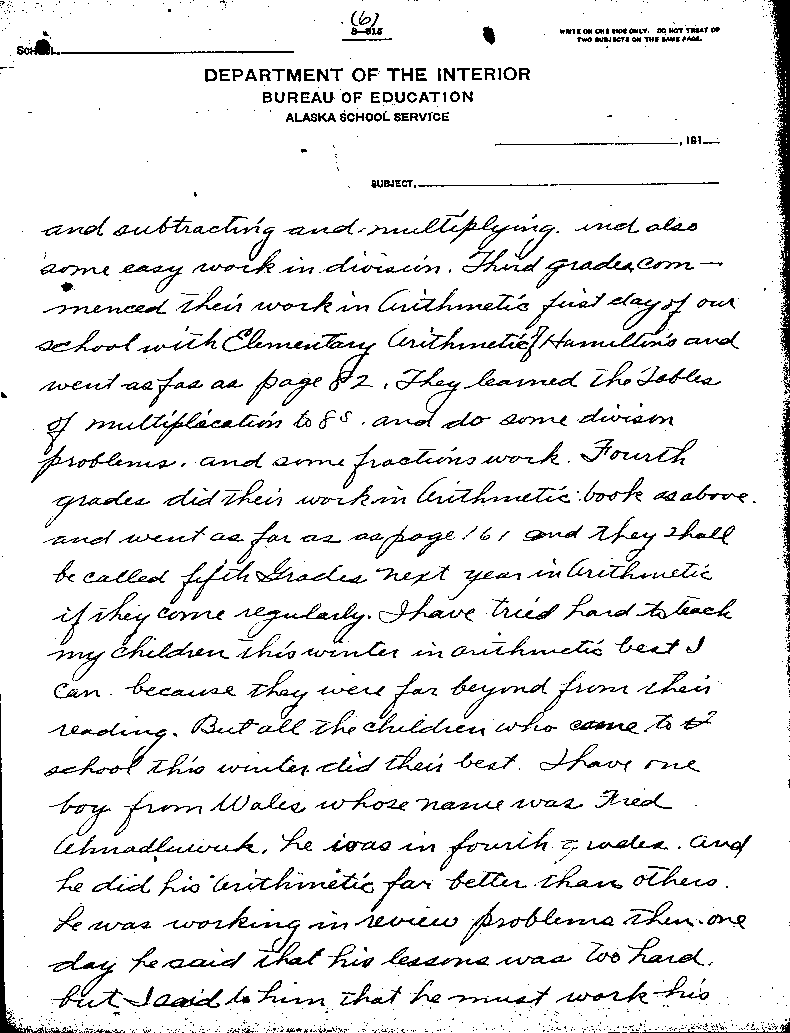 (6)
8-815
WRITE ON ONE SIDE ONLY. DO NOT TREAT OF
TWO SUBJECTS ON THE SAME PAGE.
SCHOOL,
DEPARTMENT OF THE INTERIOR
BUREAU OF EDUCATION
ALASKA SCHOOL SERVICE
, 191
SUBJECT,
and subtracting and multiplying. and also
some easy work in division. Third grades com-
menced their work in Arithmetic first day of our
school with Elementary Arithmetic of Hamilton's and
went as far as page 82. They learned the Tables
of multiplication to 8s. and do some divison
problems. and some fractions work. Fourth
grades did their work in Arithmetic book as above.
and went as far as as page 161 and they shall
be called fifth Grades next year in Arithmetic
if they come regularly. I have tried hard to teach
my children this winter in arithmetic best I
can because they were far beyond from their
reading. But all the children who came to
school this winter did their best. I have one
boy from Wales whose name was Fred
he was in fourth grades. And
he did his Arithmetic far better than others.
he was working in review problems then one
day he said that his lessons was too hard.
but I said to him that he must work his